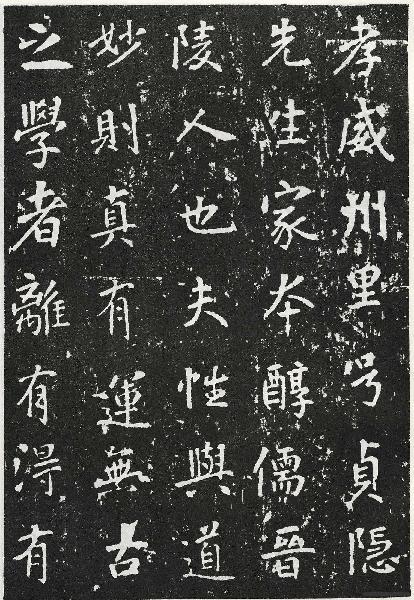 孝威州里号貞隠
先生家本醇儒晋
陵人也夫性與道
妙則真有運無古
之學者離有淂有